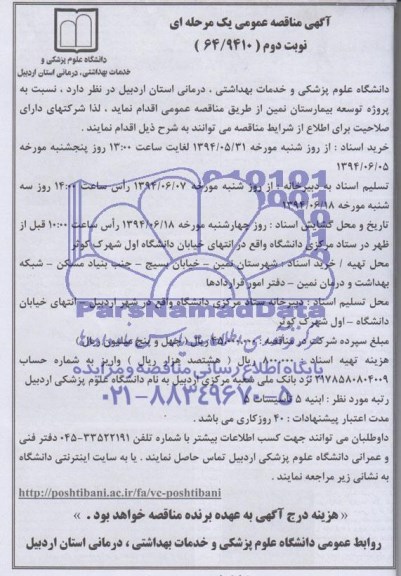 آگهی مناقصه عمومی یک مرحله ای
نوبت دوم ( ۶۴/۹۴۱۰ )
دانشگاه علوم پزشکی و
خدمات بهداشتی ، درمانی استان اردبیل
دانشگاه علوم پزشکی و خدمات بهداشتی ، درمانی استان اردبیل در نظر دارد ، نسبت به
پروژه توسعه بیمارستان نمین از طریق مناقصه عمومی اقدام نماید ، لذا شرکتهای دارای
صلاحیت برای اطلاع از شرایط مناقصه می توانند به شرح ذیل اقدام نمایند .
خرید اسناد : از روز شنبه مورخه ۱۳۹۴/۰۵/۳۱ لغایت ساعت ۱۳:۰۰ روز پنجشنبه مورخه
۱۳۹۴/۰۶/۰۵
تسلیم اسناد به دبیرخانه : از روز شنبه مورخه ۱۳۹۴/۰۶/۰۷ رأس ساعت ۱۴:۰۰ روز سه
شنبه مورخه
تاریخ و محل گشایش اسناد : روز چهارشنبه مورخه ۱۳۹۴/۰۶/۱۸ رأس ساعت ۱۰:۰۰ قبل از
ظهر در ستاد مرکزی دانشگاه واقع در انتهای خیابان دانشگاه اول شهرک کوثر
محل تهیه / خرید اسناد : شهرستان نمین – خیابان بسیج – جنب بنیاد مسکن – شبکه
بهداشت و درمان نمین – دفتر امور قراردادها
محل تسلیم اسناد : دبیرخانه ستاد مرکزی دانشگاه واقع در شهر اردبیل – انتهای خیابان
دانشگاه – اول شهرک کوثر
مبلغ سپرده شرکت در مناقصه : ریال ( چهل و پنج میلیون ریال )
هزینه تهیه اسناد : ۸۰۰،۰۰۰ ریال ( هشتصد هزار ریال ) واریز به شماره حساب
۲۱۷۸۵۸۰۸۰۴۰۰۹ نزد بانک ملی شعبه مرکزی اردبیل به نام دانشگاه علوم پزشکی اردبیل
رتبه مورد نظر : ابنیه ۵ تاسیسات ۵
مدت اعتبار پیشنهادات : ۴۰ روزکاری می باشد .
داوطلبان می توانند جهت کسب اطلاعات بیشتر با شماره تلفن ۳۳۵۲۲۱۹۱-۰۴۵ دفتر فنی
و عمرانی دانشگاه علوم پزشکی اردبیل تماس حاصل نمایند . یا به سایت اینترنتی دانشگاه
به نشانی زیر مراجعه نمایند .
http://poshtibani.ac.ir/fa/vc-poshtibani
« هزینه درج آگهی به عهده برنده مناقصه خواهد بود . »
روابط عمومی دانشگاه علوم پزشکی و خدمات بهداشتی ، درمانی استان اردبیل
ParsNamadData
پایگاه اطلاع رسانی مناقصه و مزایده
۰۲۱-۸۸۳۴۹۶۷۰-۵